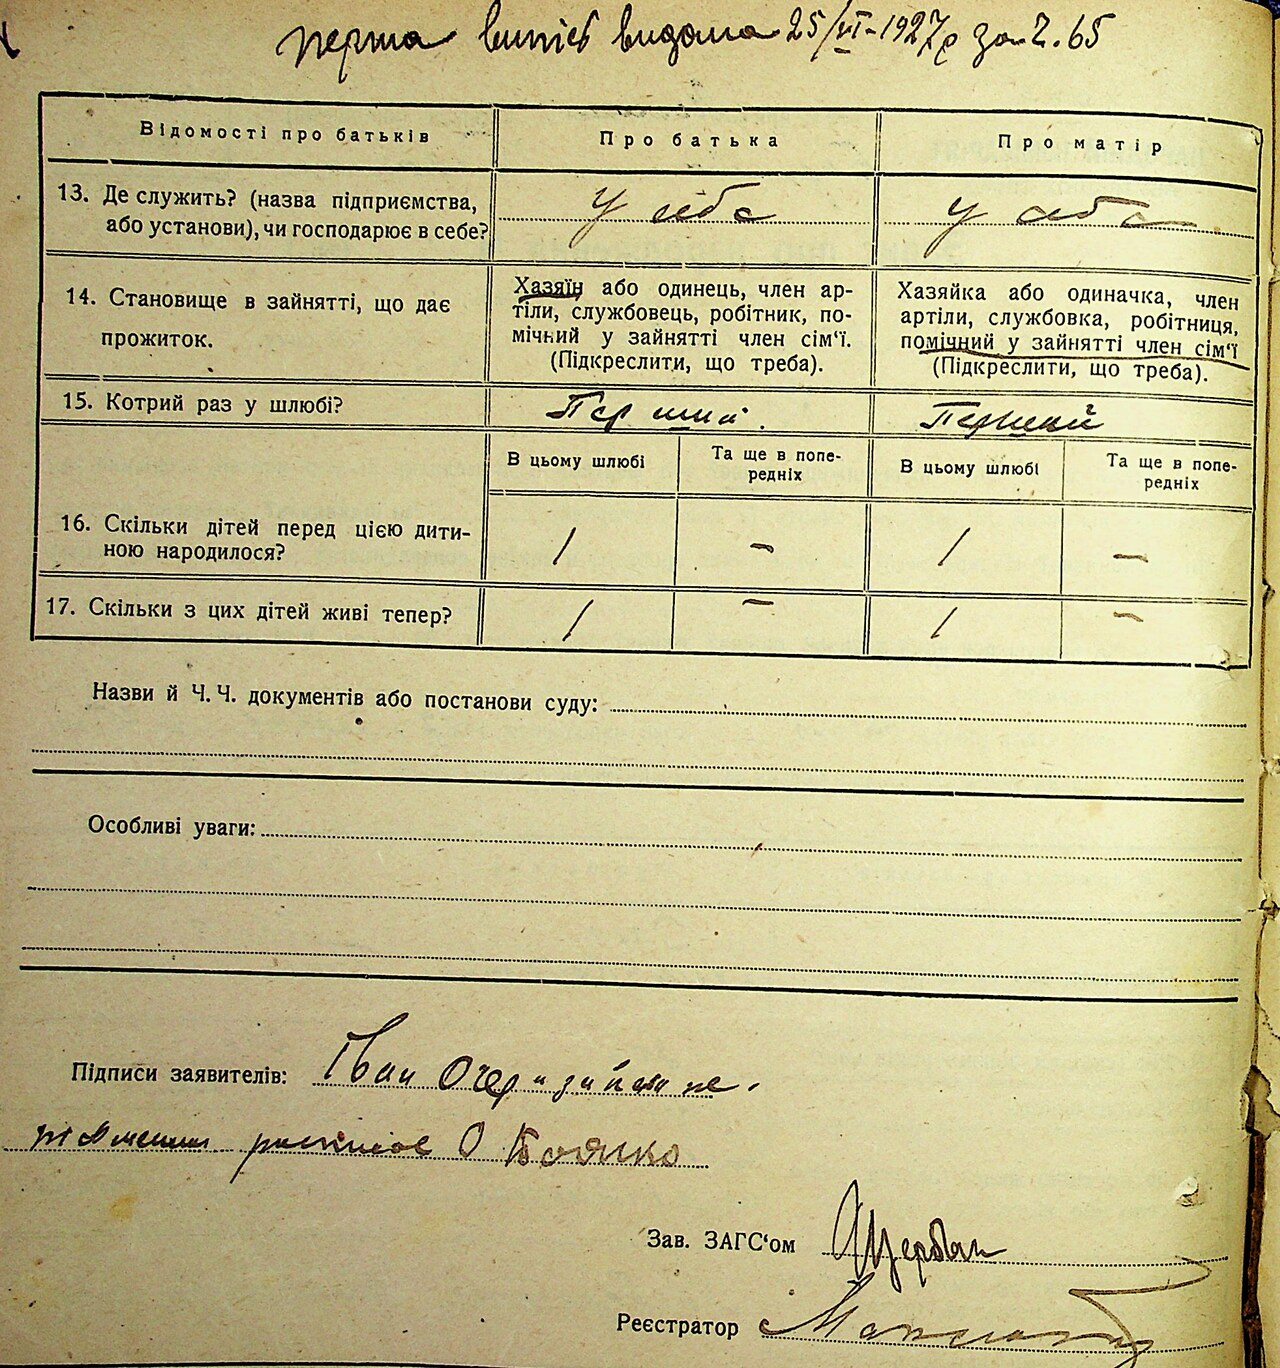 перша випись видана 25/VI-1927р за Ч. 65
Відомості про батьків
Про батька
Про матір
13. Де служить? (назва підприємства,
або установи), чи господарює в себе?
У себе
У себе
14. Становище в зайнятті, що дає
прожиток.
Хазяїн або одинець, член ар-
тіли, службовець, робітник, по-
мічний у зайнятті член сім‘ї.
(Підкреслити, що треба).
Хазяйка або одиначка, член
артіли, службовка, робітниця,
помічний у зайнятті член сім‘ї
(Підкреслити, що треба).
15. Котрий раз у шлюбі?
Перший.
Перший
В цьому шлюбі
Та ще в попе-
редніх
В цьому шлюбі
Та ще в попе-
редніх
16. Скільки дітей перед цією дити-
ною народилося?
1
–
1
–
17. Скільки з цих дітей живі тепер?
1
–
1
–
Назви й Ч. Ч. документів або постанови суду:
Особливі уваги:
Підписи заявителів: Іван
О Бойко
Зав. ЗАГС‘ом Щербак
Реєстратор